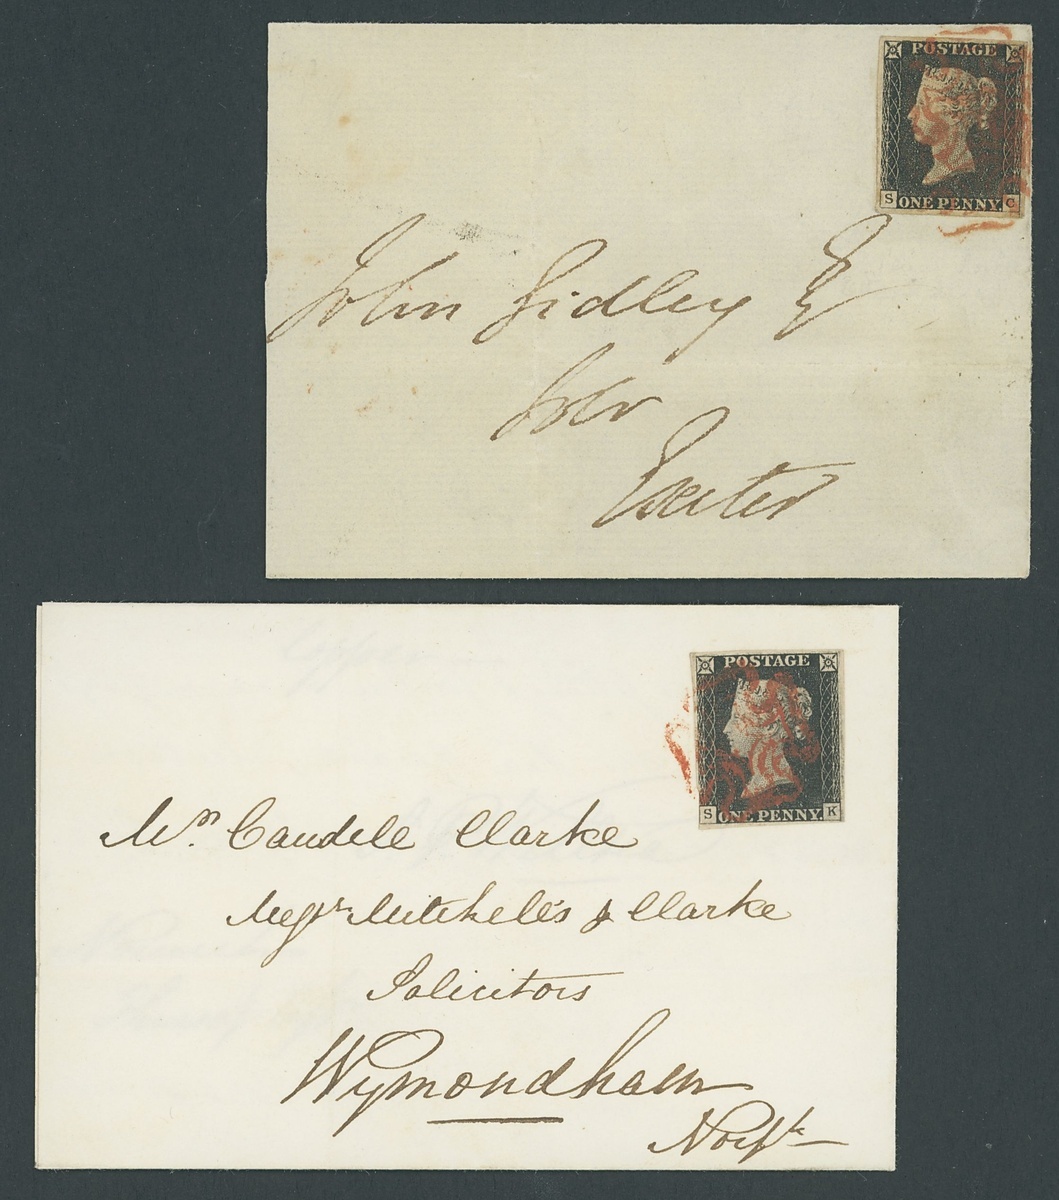 POSTAGE
S ONE PENNY. C
John Gidley Esq
Solr
Exeter
POSTAGE
S ONE PENNY. K
Mr. Caudele Clarke
Messrs. Mitchels & Clarke
Solicitors
Wymondham
Norfk